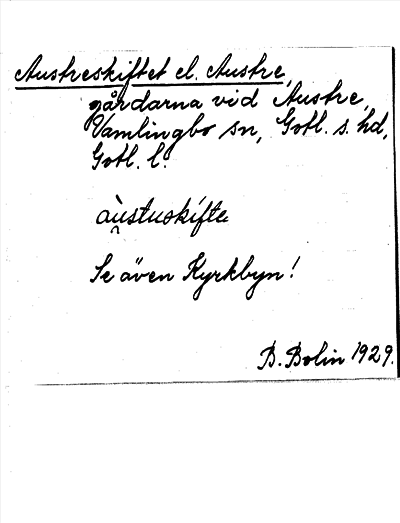 Austreskiftet el. Austre,
gårdarna vid Austre,
Vamlingbo sn, Gotl. s. hd,
Gotl. l.
aù̯stuskífte
Se även Kyrkbyn!
B. Bolin 1929.